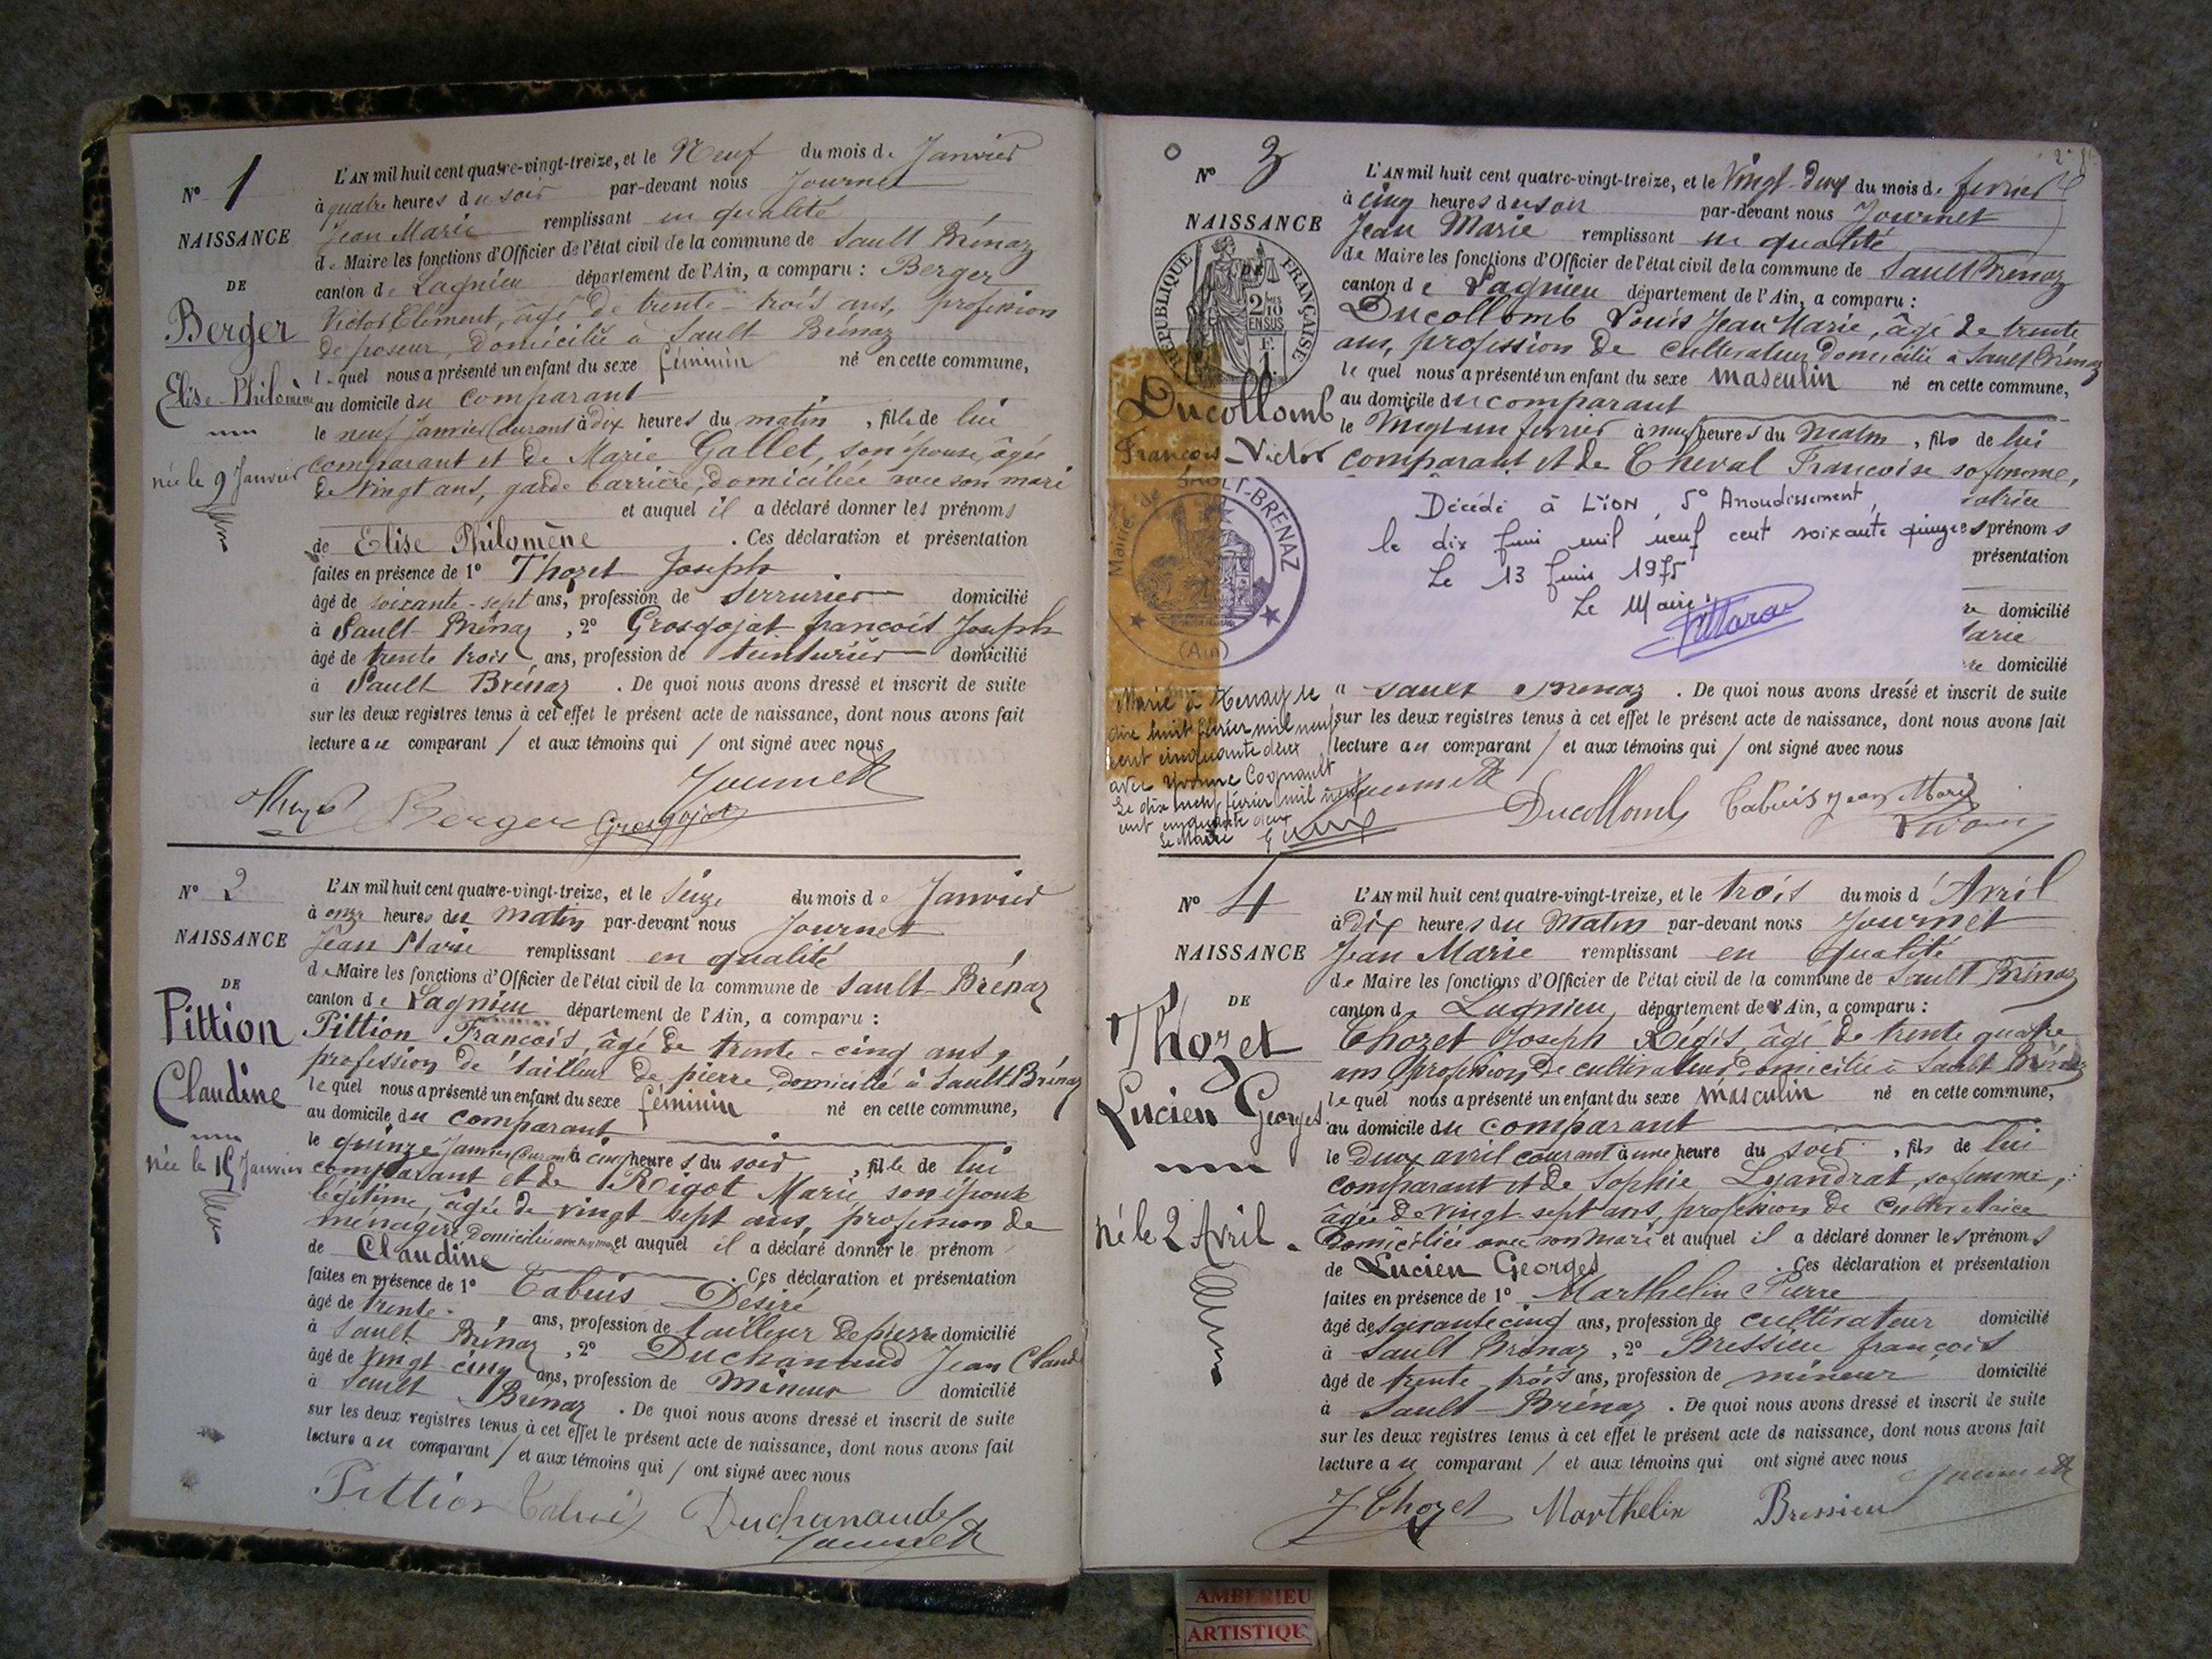 N° 1
NAISSANCE
DE
Berger
Elise-Philomène
née le 9 Janvier
L'AN mil huit cent quatre-vingt-treize, et le Neuf du mois de Janvier
à quatre heures du soir par-devant nous Journet
Jean Marie remplissant en qualité
de Maire les fonctions d'Officier de l'état civil de la commune de Sault Brénaz
canton de Lagnieu département de l'Ain, a comparu : Berger
Victor Clément, âgé de trente-trois ans, profession
de poseur, domicilié à Sault Brénaz
lequel nous a présenté un enfant du sexe féminin né en cette commune,
au domicile du comparant
le neuf janvier courant à dix heures du matin, fille de lui
comparant et de Marie Gallet, son épouse, âgée
de vingt ans, garde barrière, domiciliée avec son mari
et auquel il a déclaré donner les prénoms
de Elise Philomène . Ces déclaration et présentation
faites en présence de 1° Thozet Joseph
âgé de soixante-sept ans, profession de serrurier domicilié
à Sault-Brénaz , 2° Grosgojat françois Joseph
âgé de trente trois ans, profession de teinturier domicilié
à Sault Brénaz . De quoi nous avons dressé et inscrit de suite
sur les deux registres tenus à cet effet le présent acte de naissance, dont nous avons fait
lecture au comparant / et aux témoins qui / ont signé avec nous
Journet
Berger Grosgojat
N° 2
NAISSANCE
DE
Pittion
Claudine
née le 15 Janvier
L'AN mil huit cent quatre-vingt-treize, et le Seize du mois de Janvier
à onze heures du matin par-devant nous Journet
Jean Marie remplissant en qualité
de Maire les fonctions d'Officier de l'état civil de la commune de Sault-Brénaz
canton de Lagnieu département de l'Ain, a comparu :
Pittion François, âgé de trente-cinq ans,
profession de tailleur de pierre domicilié à Sault Brénaz
lequel nous a présenté un enfant du sexe féminin né en cette commune,
au domicile du comparant
le quinze Janvier courant à cinq heures du soir, fille de lui
comparant et de Rigot Marie, son épouse
légitime, âgée de vingt-sept ans, profession de
ménagère domiciliée et auquel il a déclaré donner le prénom
de Claudine . Ces déclaration et présentation
faites en présence de 1° Cabuis Désiré
âgé de trente ans, profession de tailleur de pierre domicilié
à Sault Brénaz , 2° Duchanaud Jean Claude
âgé de vingt-cinq ans, profession de Mineur domicilié
à Sault Brénaz . De quoi nous avons dressé et inscrit de suite
sur les deux registres tenus à cet effet le présent acte de naissance, dont nous avons fait
lecture au comparant / et aux témoins qui / ont signé avec nous
Pittion Cabuis Duchanaud
Journet
N° 3
NAISSANCE
DE
RÉPUBLIQUE FRANÇAISE
2/10 EN SUS
Ducollomb
François-Victor
L'AN mil huit cent quatre-vingt-treize, et le Vingt-deux du mois de fevrier
à cinq heures du soir par-devant nous Journet
Jean Marie remplissant en qualité
de Maire les fonctions d'Officier de l'état civil de la commune de Sault Brénaz
canton de Lagnieu département de l'Ain, a comparu :
Ducollomb Louis Jean Marie, âgé de trente
ans, profession de cultivateur domicilié à Sault Brénaz
lequel nous a présenté un enfant du sexe masculin né en cette commune,
au domicile du comparant
le Vingt un fevrier à neuf heures du Matin, fils de lui
comparant et de Cheval Françoise sa femme,
Mairie de SAULT-BRENAZ
(Ain)
Décédé à LYON, 5° Arrondissement,
le dix juin mil neuf cent soixante quinze
Le 13 juin 1975
Le Maire,
prénoms
présentation
domicilié
domicilié
à Sault Brénaz . De quoi nous avons dressé et inscrit de suite
sur les deux registres tenus à cet effet le présent acte de naissance, dont nous avons fait
lecture au comparant / et aux témoins qui / ont signé avec nous
Marié à le
dix huit février mil neuf
cent cinquante deux
avec Yvonne Cognault
Le dix neuf février mil neuf
cent cinquante deux
Le Maire
Journet Ducollomb Cabuis Jean Marie
N° 4
NAISSANCE
DE
Thozet
Lucien Georges
né le 2 Avril
L'AN mil huit cent quatre-vingt-treize, et le trois du mois d'Avril
à Dix heures du Matin par-devant nous Journet
Jean Marie remplissant en qualité
de Maire les fonctions d'Officier de l'état civil de la commune de Sault Brénaz
canton de Lagnieu, département de l'Ain, a comparu :
Thozet Joseph Régis, âgé de trente quatre
ans profession de cultivateur domicilié à Sault Brénaz
lequel nous a présenté un enfant du sexe masculin né en cette commune,
au domicile du comparant
le deux avril courant à une heure du soir, fils de lui
comparant et de Sophie Lyandrat, sa femme,
âgée de vingt-sept ans, profession de cultivatrice
domiciliée avec son mari et auquel il a déclaré donner les prénoms
de Lucien Georges . Ces déclaration et présentation
faites en présence de 1° Marthelin Pierre
âgé de soixante cinq ans, profession de cultivateur domicilié
à Sault Brénaz , 2° Bressieu françois
âgé de trente trois ans, profession de mineur domicilié
à Sault-Brénaz . De quoi nous avons dressé et inscrit de suite
sur les deux registres tenus à cet effet le présent acte de naissance, dont nous avons fait
lecture au comparant / et aux témoins qui ont signé avec nous
Journet
J Thozet Marthelin Bressieu
AMBERIEU
ARTISTIQU